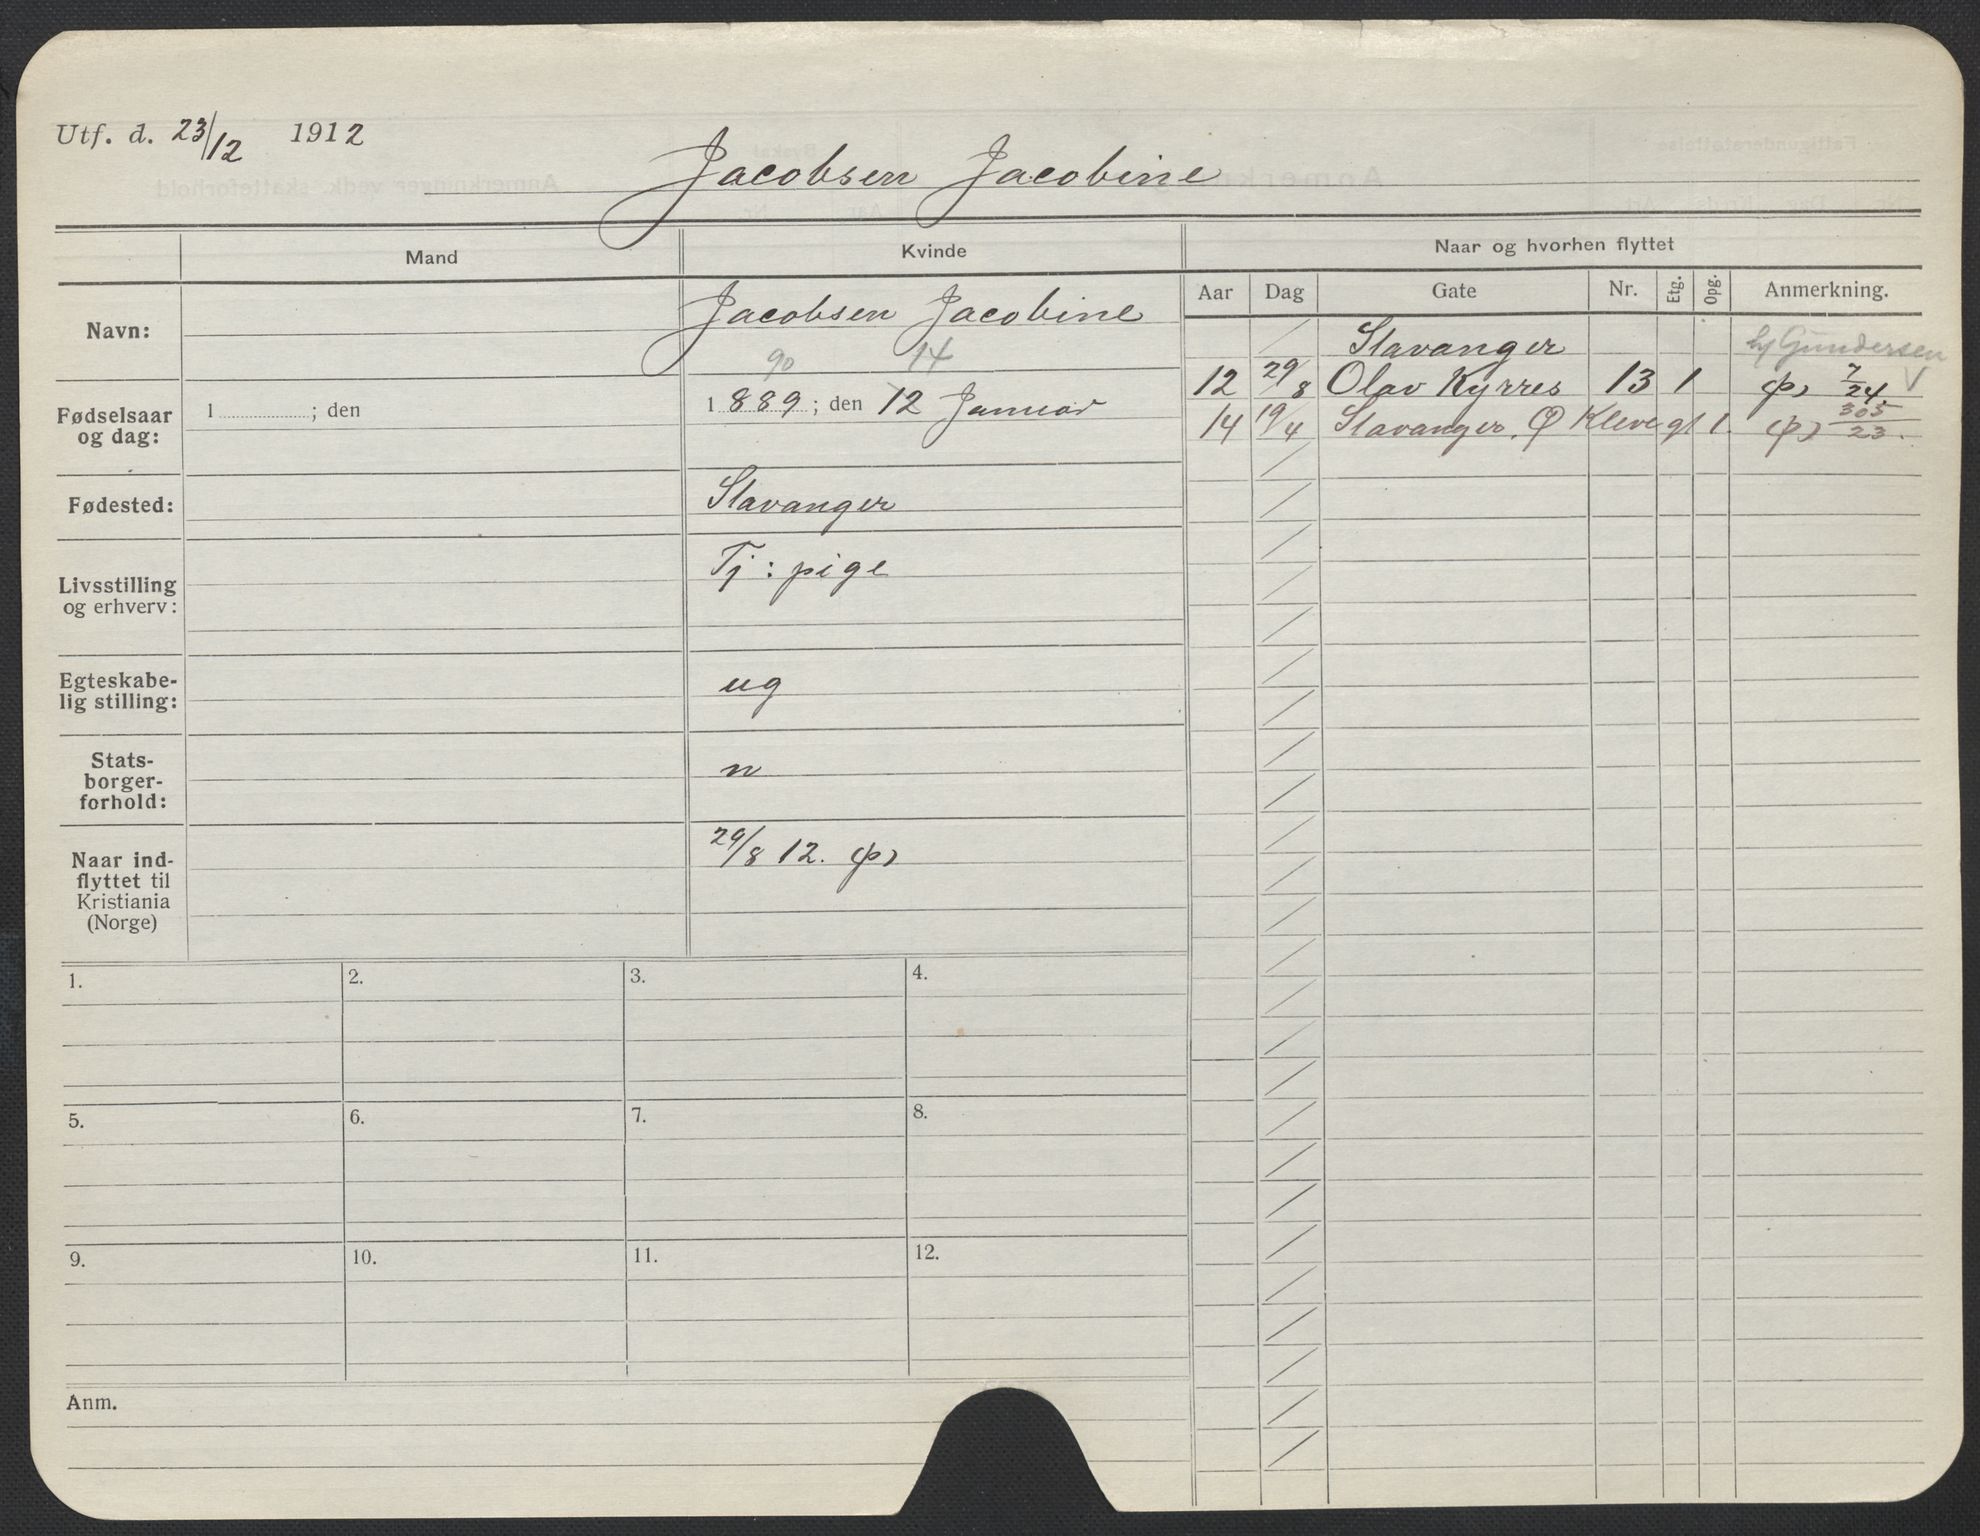 Utf. d. 23/12 1912
Jacobsen Jacobine
Mand
Kvinde
Naar og hvorhen flyttet
Aar Dag Gate Nr. Etg. Opg. Anmerkning.
Navn:
Jacobsen Jacobine
90 14
Fødselsaar
og dag:
1 ; den
1889; den 12 Januar
Fødested:
Stavanger
Livsstilling
og erhverv:
Tj: pige
Egteskabe-
lig stilling:
ug
Stats-
borger-
forhold:
n
Naar ind-
flyttet til
Kristiania
(Norge)
29/8 12. (p)
Stavanger hj Gundersen
12 29/8 Olav Kyrres 13 1 (p) 7/24. V
14 19/4 Stavanger. Ø Kleve gt 1. (p) 305/23.
1.
2.
3.
4.
5.
6.
7.
8.
9.
10.
11.
12.
Anm.